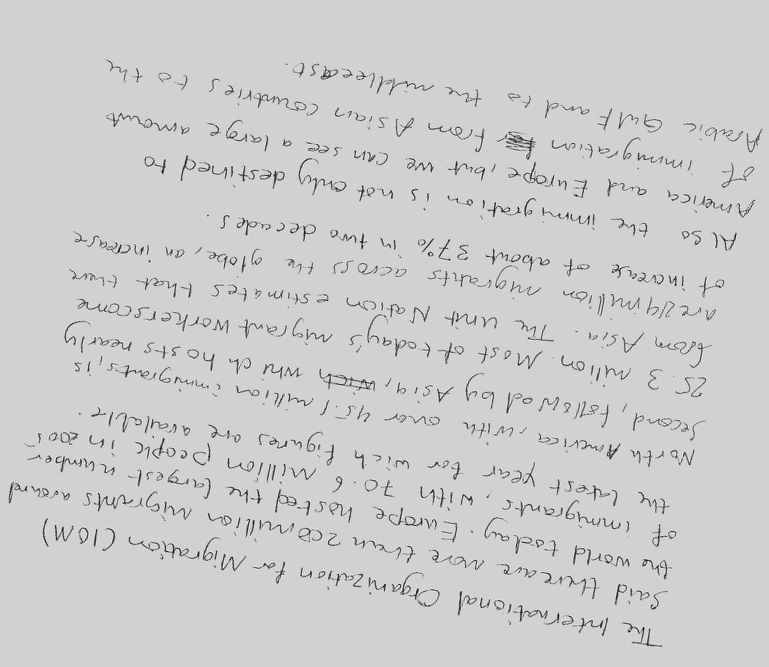 The International Organization for Migration (IOM)
Said there are more then 200 million migrants around
the world today. Europe hosted the largest number
of immigrants, with 70.6 million people in 2005
the latest year for wich figures are available.
North America, with over 45.1 million immigrants, is
Second, followed by Asia, which hosts nearly
25.3 million. Most of today's migrant workers come
from Asia. The Unit Nation estimates that there
are 214 million migrants across the globe, an increase
of increase of about 37% in two decades.
Also the immigration is not only destined to
America and Europe, but we can see a large amount
of immigration from Asian countries to the
Arabic Gulf and to the middleeast.